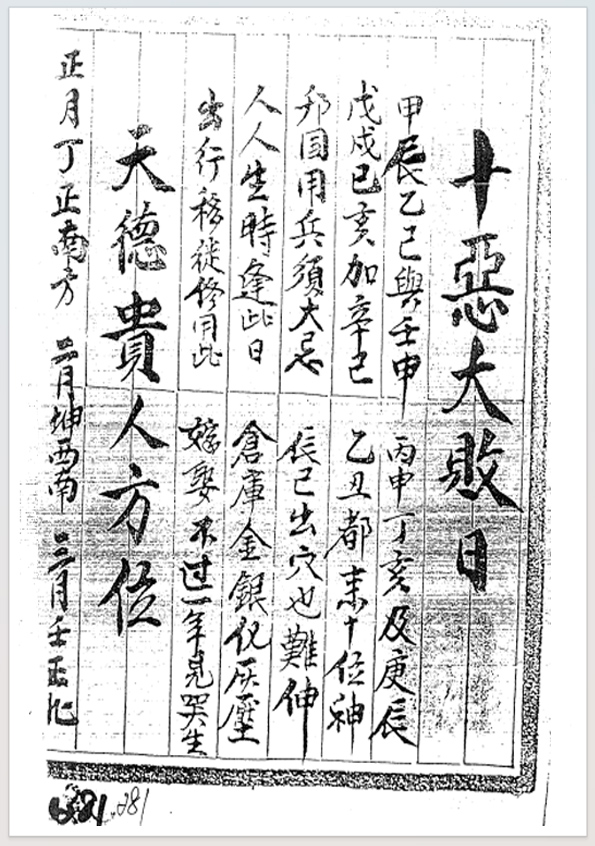 十惡大敗日
甲辰乙己與壬申　丙申丁亥及庚辰
戊戌己亥加辛己　乙丑都來十位神
邦国用兵須大忌　辰己出穴也難伸
人人生時逢此日　倉庫金銀化灰塵
出行移徙修同此　嫁娶不过一年見哭生
天德貴人方位
正月丁正南方　二月坤西南　三月壬正北
281